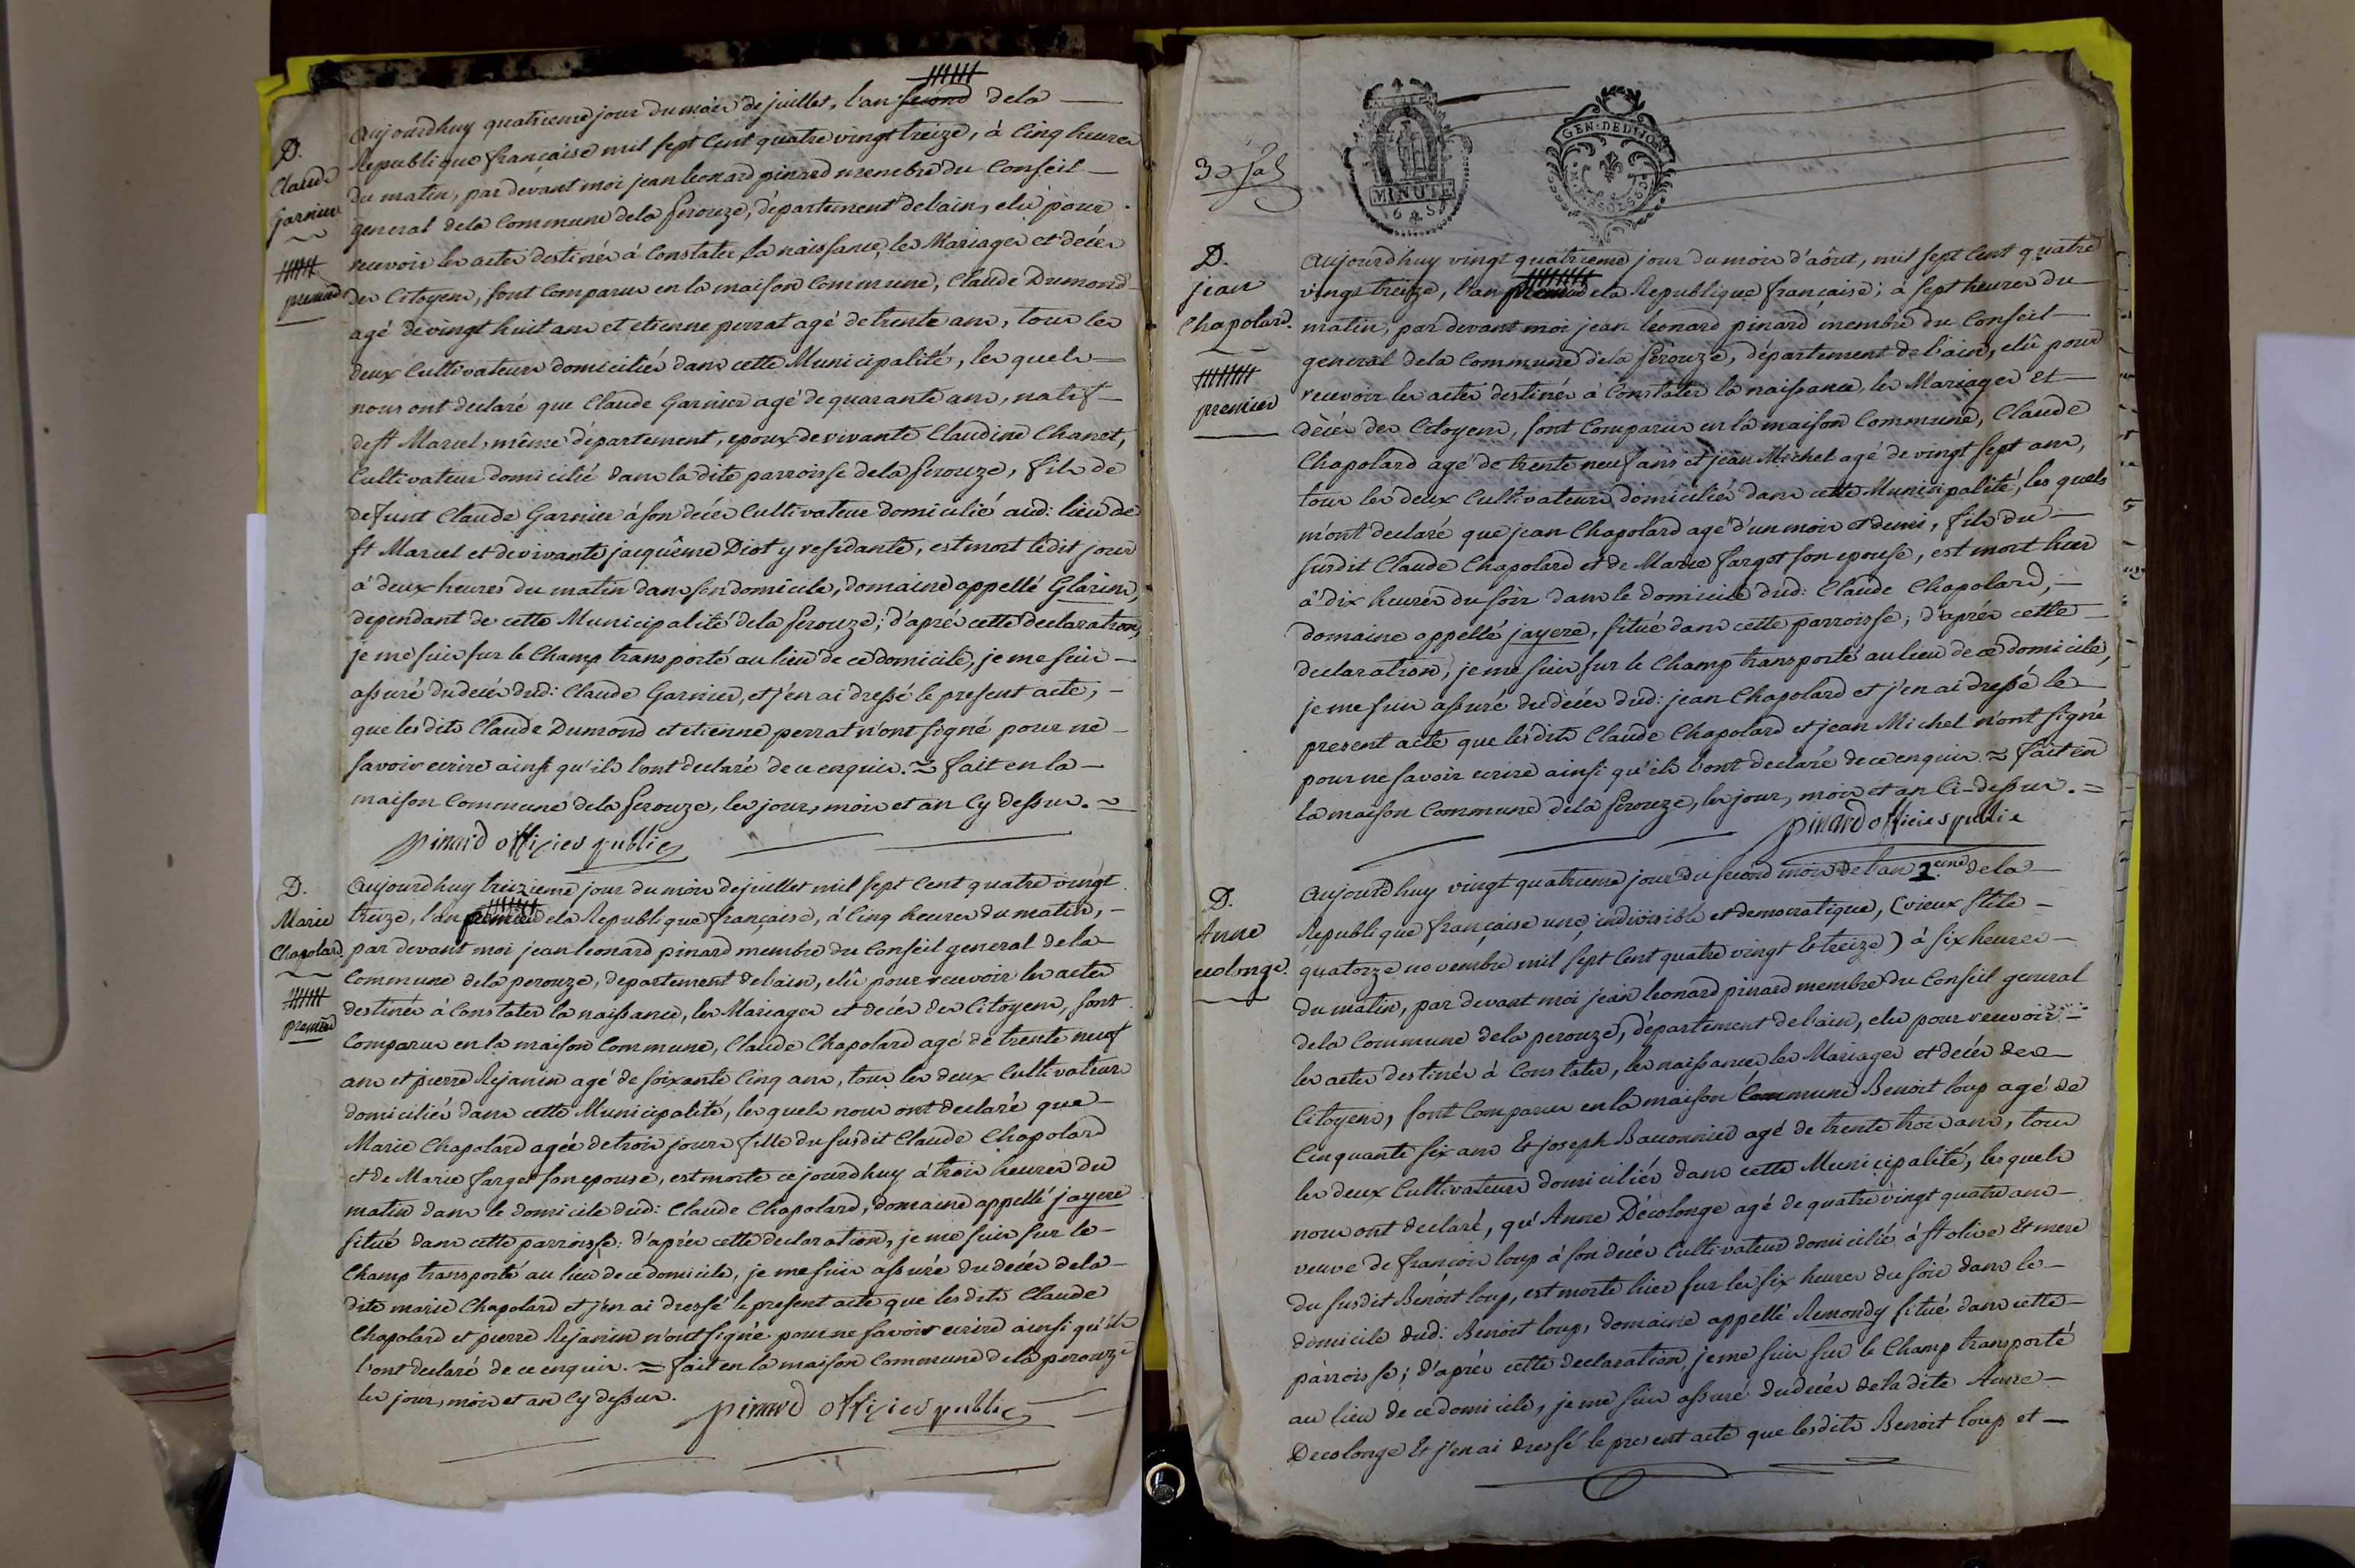 D.
Claude
Garnier
premier
aujourdhuy quatrieme jour du mois de juillet, l'an second dela
Republique française mil sept Cent quatre vingt treize, à Cinq heures
du matin, par devant moi jean leonard pinard membre du Conseil
general dela Commune dela perouze, département delain, elu pour
recevoir les actes destinés à Constater la naissance, les Mariages et deces
des Citoyens, sont Comparus en la maison Commune, Claude Dumond
agé de vingt huit ans et etienne perrat agé de trente ans, tous les
deux Cultivateurs domiciliés dans cette Municipalité, les quels
nous ont declaré que Claude Garnier agé de quarante ans, natif
de st Marcel, même département, epoux de vivante Claudine Chanet,
Cultivateur domicilié dans la dite parroisse dela perouze, fils de
defunt Claude Garnier à son decès Cultivateur domicilié aud: lieu de
st Marcel et de vivante jacquême Diot y residante, est mort ledit jour
à deux heures du matin dans son domicile, domaine appellé Glarins,
dependant de cette Municipalité dela perouze; d'après cette declaration,
je me suis sur le Champ transporté au lieu de ce domicile, je me suis
assuré du decès dud: Claude Garnier, et j'en ai dressé le present acte,
que lesdits Claude Dumond et etienne perrat n'ont signé pour ne
savoir ecrire ainsi qu'ils l'ont declaré de ce enquis. = fait en la
maison Commune dela perouze, les jour, mois et an Cy dessus. =
pinard officier public
D.
Marie
Chapolard.
premier
Aujourdhuy treizieme jour du mois de juillet mil sept Cent quatre vingt
treize, l'an premier dela Republique française, à Cinq heures du matin,
par devant moi jean leonard pinard membre du Conseil general dela
Commune dela perouze, departement delain, elû pour recevoir les actes
destinés à Constater la naissance, les Mariages et decès des Citoyens, sont
Comparus en la maison Commune, Claude Chapolard agé de trente neuf
ans et pierre Rejanin agé de soixante Cinq ans, tous les deux Cultivateurs
domiciliés dans cette Municipalité, les quels nous ont declaré que
Marie Chapolard agée de trois jours fille du susdit Claude Chapolard
et de Marie fargot son epouse, est morte ce jourdhuy à trois heures du
matin dans le domicile dud: Claude Chapolard, domaine appellé jayere
situé dans cette parroisse: d'après cette declaration, je me suis sur le
Champ transporté au lieu de ce domicile, je me suis assuré du decès dela
dite marie Chapolard et j'en ai dressé le present acte que lesdits Claude
Chapolard et pierre Rejanin n'ont signé pour ne savoir ecrire ainsi qu'ils
l'ont declaré de ce enquis. = fait en la maison Commune dela perouze
les jour, mois et an Cy dessus.
pinard officier public
MINUTE
6 S
GEN: DE DIJON
D.
jean
Chapolard.
premier
aujourd'huy vingt quatrieme jour du mois d'aôut, mil sept Cent quatre
vingt treize, l'an premier dela Republique française; à sept heures du
matin, par devant moi jean leonard pinard membre du Conseil
general dela Commune dela perouze, département de lain, elû pour
recevoir les actes destinés à Constater la naissance, les Mariages et
décès des Citoyens, sont Comparus en la maison Commune, Claude
Chapolard agé de trente neuf ans et jean Michel agé de vingt sept ans,
tous les deux Cultivateurs domiciliés dans cette Municipalité, les quels
m'ont declaré que jean Chapolard agé d'un mois et demi, fils du
susdit Claude Chapolard et de Marie fargot son epouse, est mort hier
à dix heures du soir dans le domicile dud: Claude Chapolard,
domaine appellé jayere, situé dans cette parroisse; d'après cette
declaration, je me suis sur le Champ transporté au lieu de ce domicile,
je me suis assuré du decès dud: jean Chapolard et j'en ai dressé le
present acte que lesdits Claude Chapolard et jean Michel n'ont signé
pour ne savoir ecrire ainsi qu'ils l'ont declaré de ce enquis = fait en
la maison Commune dela perouze, les jour, mois et an Ci-dessus. =
pinard officier public
D.
Anne
ecolonge.
Aujourd'huy vingt quatrieme jour du second mois de l'an 2.eme dela
Republique française une, indivisible et democratique, (vieux stile
quatorze novembre mil sept Cent quatre vingt Et treize) à six heures
du matin, par devant moi jean leonard pinard membre du Conseil general
dela Commune dela perouze, département delain, elu pour recevoir
les actes destinés à Constater, les naissances, les Mariages et decès des
Citoyens, sont Comparus en la maison Commune Benoit loup agé de
Cinquante six ans Et joseph Bauonnier agé de trente trois ans, tous
les deux Cultivateurs domiciliés dans cette Municipalité, les quels
nous ont declaré, qu'Anne Décolonge agé de quatre vingt quatre ans
veuve de françois loup à son decès Cultivateur domicilié à st olive Et mere
du susdit Benoit loup, est morte hier sur les six heures du soir dans le
domicile dud: Benoit loup, domaine appellé Remondy situé dans cette
parroisse; d'après cette declaration, je me suis sur le Champ transporté
au lieu de ce domicile, je me suis assuré du decès dela dite Anne
Decolonge Et j'en ai dressé le present acte que lesdits Benoit loup et